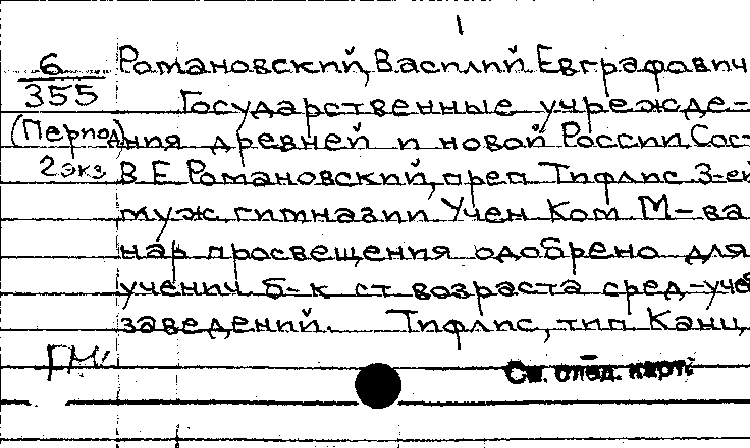 1
6
355
(Период)
2 экз
Романовский, Василий Евграфович
Государственные учрежде-
ния древней и новой России. Сос
В Е Романовский, преп Тифлис 3-ей
муж гимназии Учен Ком М-ва
нар просвещения одобрено для
ученич б-к ст возраста сред-уче
заведений. Тифлис, тип Канц,
См. след. карт.